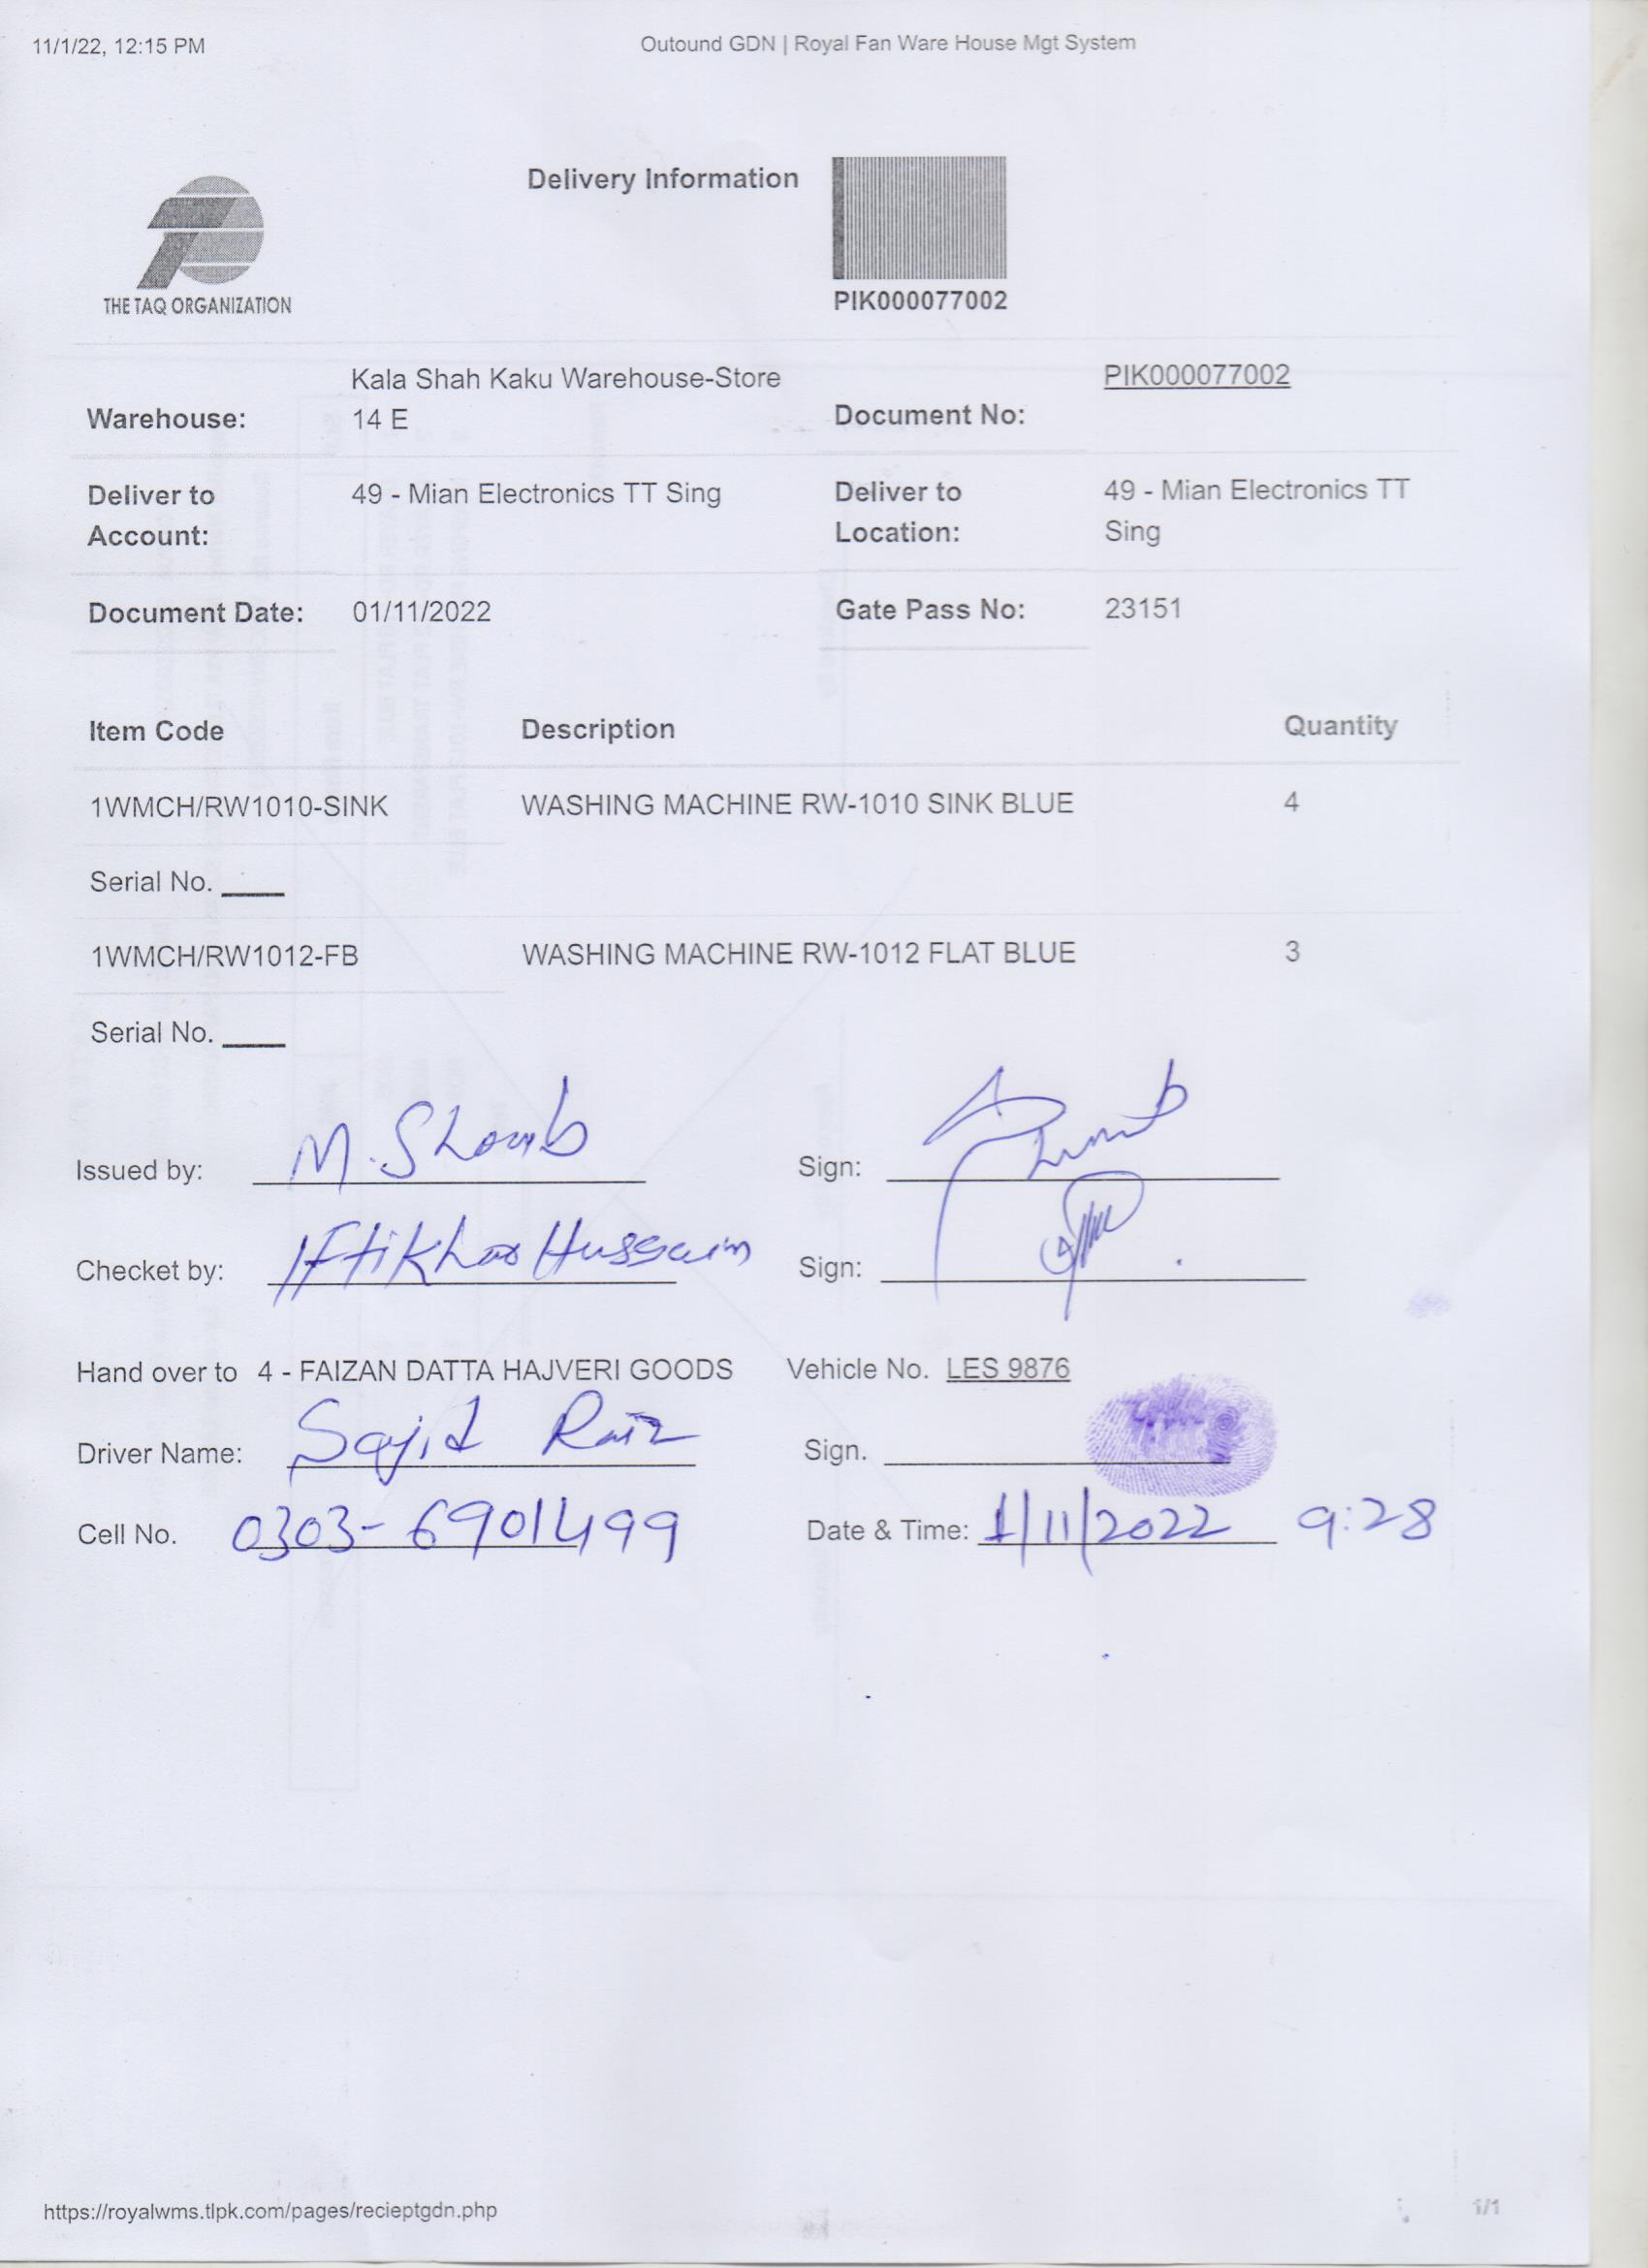 11/1/22, 12:15 PM Outound GDN | Royal Fan Ware House Mgt System
Delivery Information
THE TAQ ORGANIZATION
PIK000077002
Warehouse: Kala Shah Kaku Warehouse-Store 14 E Document No: PIK000077002
Deliver to Account: 49 - Mian Electronics TT Sing Deliver to Location: 49 - Mian Electronics TT Sing
Document Date: 01/11/2022 Gate Pass No: 23151
Item Code Description Quantity
1WMCH/RW1010-SINK WASHING MACHINE RW-1010 SINK BLUE 4
Serial No.
1WMCH/RW1012-FB WASHING MACHINE RW-1012 FLAT BLUE 3
Serial No.
Issued by: M. Shoaib Sign:
Checket by: Iftikhar Hussain Sign:
Hand over to 4 - FAIZAN DATTA HAJVERI GOODS Vehicle No. LES 9876
Driver Name: Sajid Sign.
Cell No. 0303-6901499 Date & Time: 1/11/2022 9:28
https://royalwms.tlpk.com/pages/recieptgdn.php 1/1